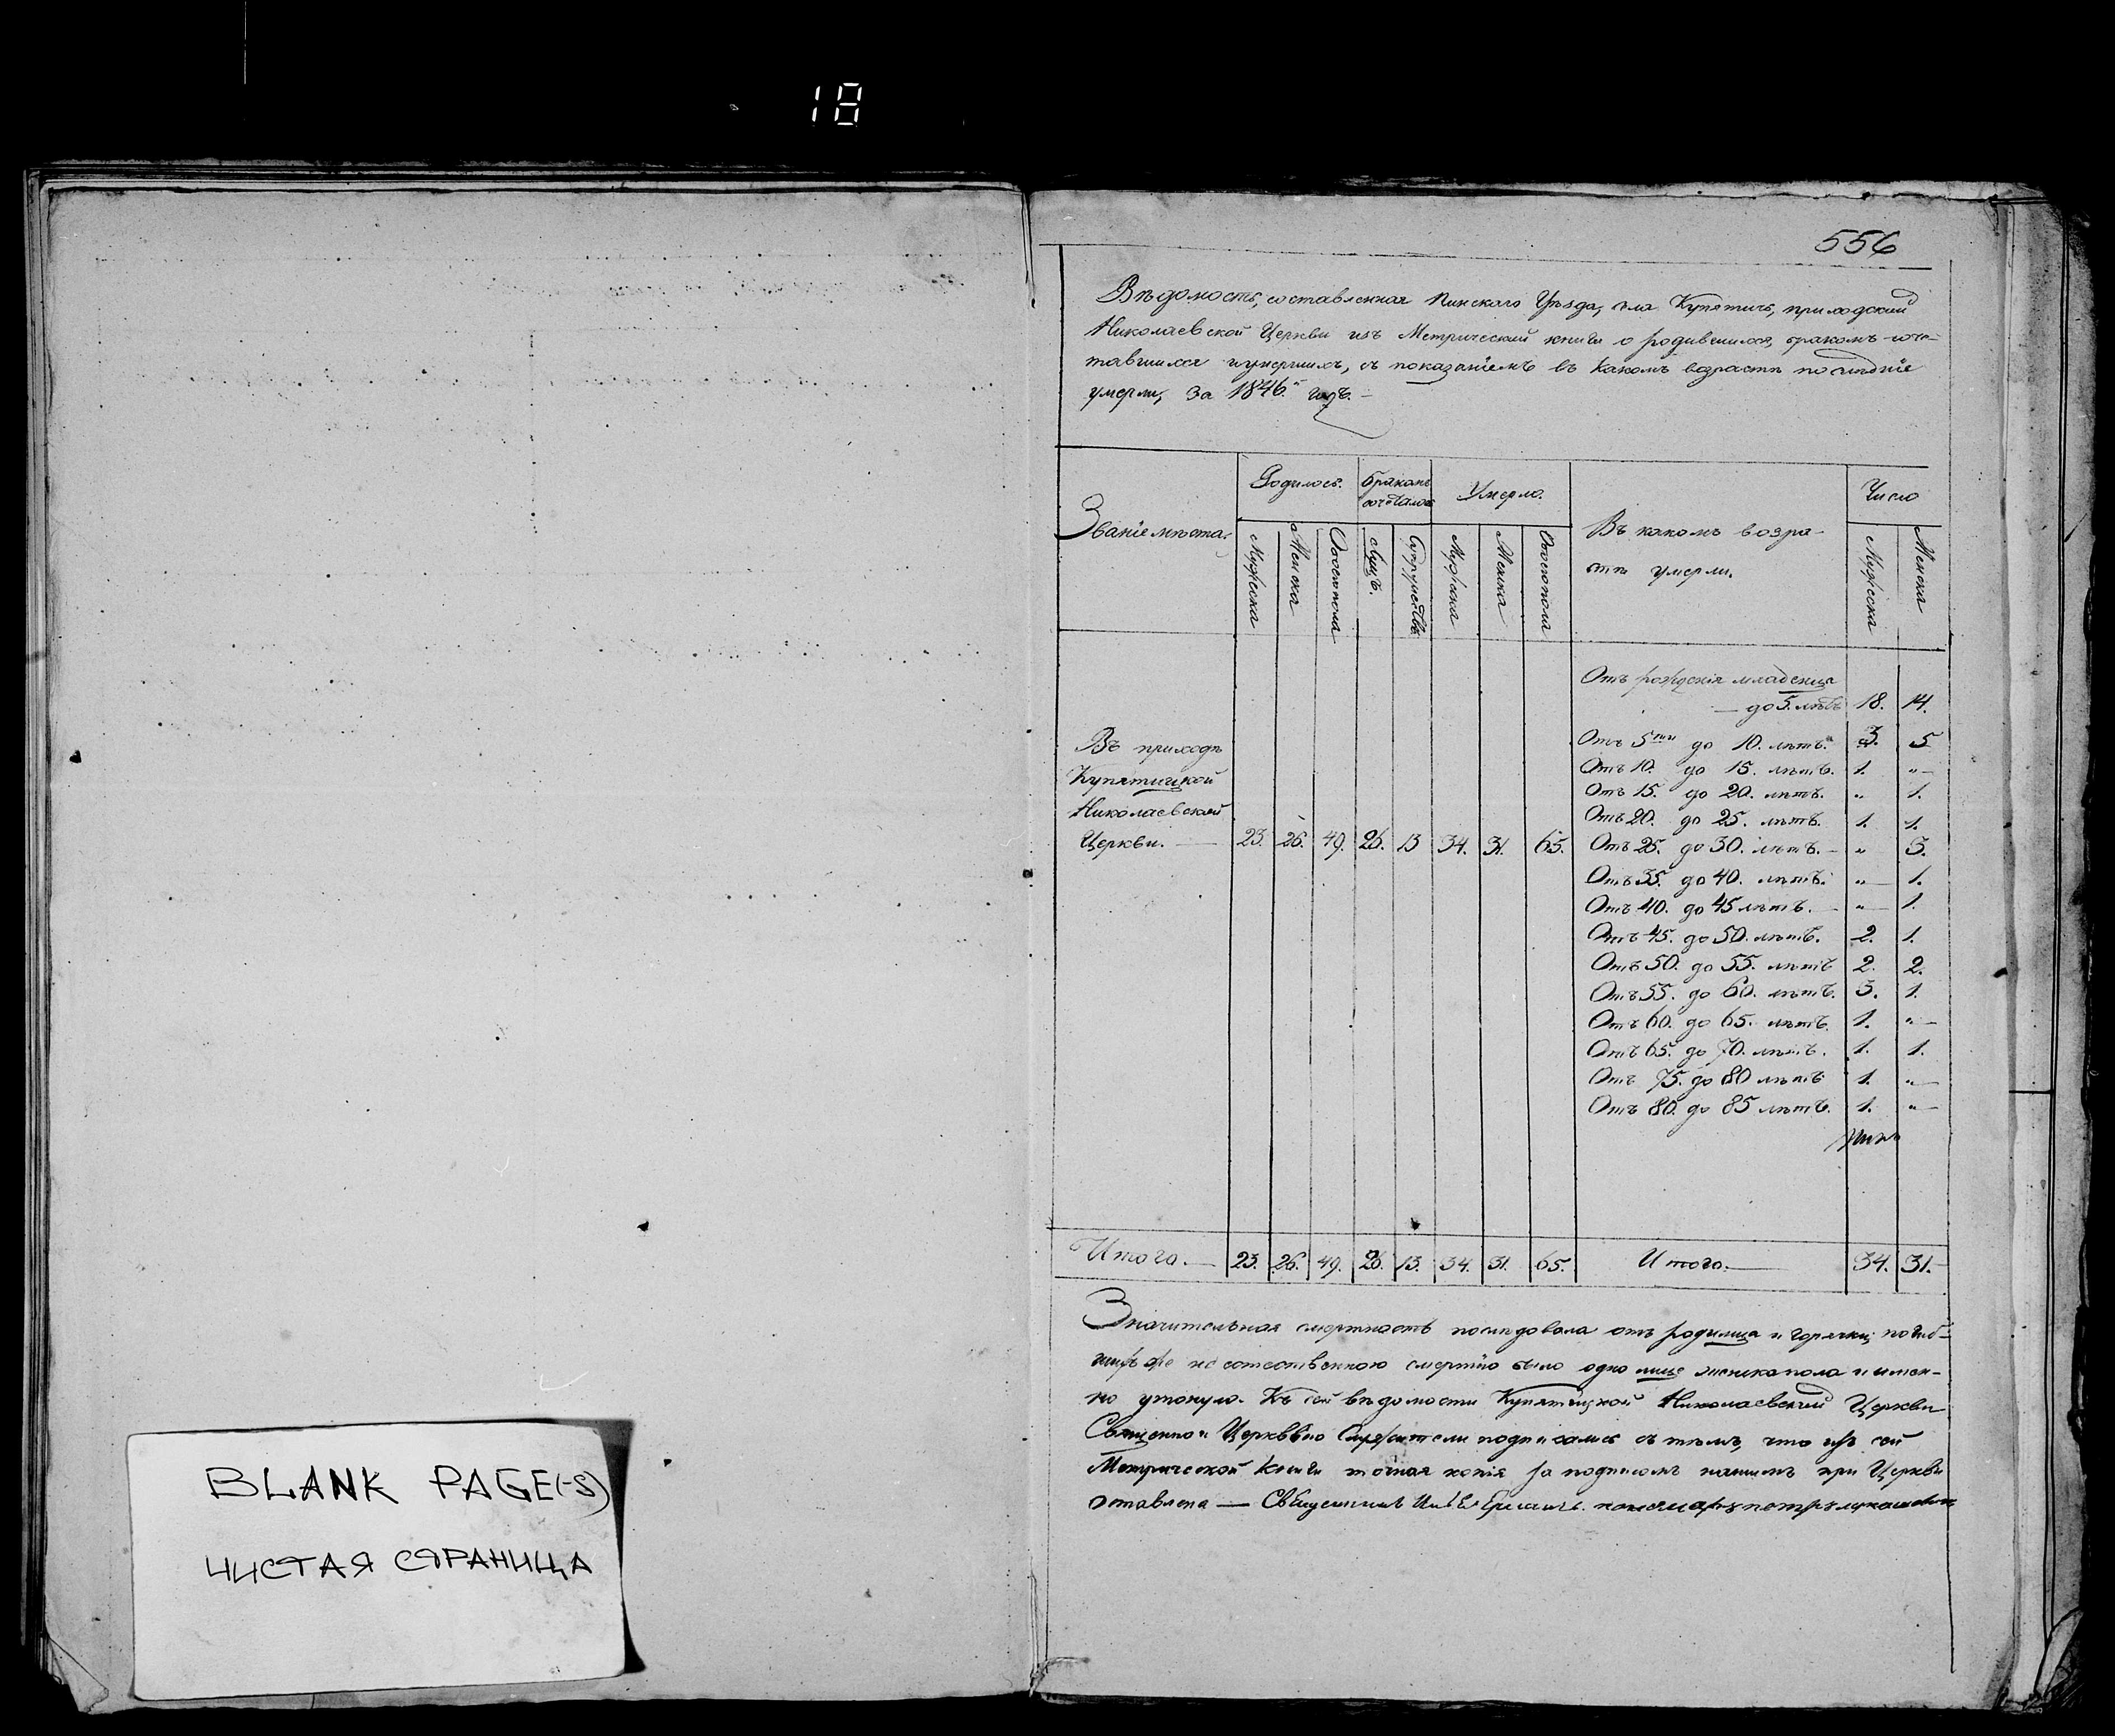 18
556
Вѣдомость, составленная Пинскаго Уѣзда, села Купятичь, приходской
Николаевской Церкви изъ Метрической книги о родившихся, бракомъ соче-
тавшихся и умершихъ, съ показаніемъ въ какомъ возрастѣ послѣдніе
умерли, за 1846й годъ. –
Званіе мѣста.
Родилось.
Бракомъ сочеталось
Умерло.
Въ какомъ возра-
стѣ умерли.
Число
Мужеска
Женска
Обоего пола
Лицъ.
Супружествъ.
Мужеска
Женска
Обоего пола
Мужеска
Женска
Отъ рожденія младенца
— до 5. лѣтъ 18. 14.
Отъ 5ти до 10. лѣтъ. 3. 5
Отъ 10. до 15. лѣтъ. 1. „
Отъ 15. до 20. лѣтъ. „ 1.
Отъ 20. до 25. лѣтъ. 1. 1.
Отъ 25. до 30. лѣтъ. – „ 3.
Отъ 35. до 40. лѣтъ. „ 1.
Отъ 40. до 45 лѣтъ. — „ 1.
Отъ 45. до 50. лѣтъ. 2. 1.
Отъ 50. до 55. лѣтъ 2. 2.
Отъ 55. до 60. лѣтъ. 3. 1.
Отъ 60. до 65. лѣтъ. 1. „
Отъ 65. до 70. лѣтъ. 1. 1.
Отъ 75. до 80 лѣтъ 1. „
Отъ 80. до 85 лѣтъ. 1. „
Въ приходѣ
Купятицкой
Николаевской
Церкви. — 23. 26. 49. 26. 13 34. 31. 65.
Итого. — 23. 26. 49. 26. 13. 34. 31. 65. Итого. — 34. 31.
Значительная смертность послѣдовала отъ родимца и горячки; погиб-
шихъ же не естественною смертію было одно лице женска пола и имен-
но утонуло. Къ сей вѣдомости Купятицкой Николаевской Церкви
Священно и Церковно Служители подписались съ тѣмъ, что изъ сей
Метрической Книги точная копія за подписомъ нашимъ при Церкви
оставлена — Священникъ пономарь петръ лукашевич
BLANK PAGE(-S)
ЧИСТАЯ СТРАНИЦА